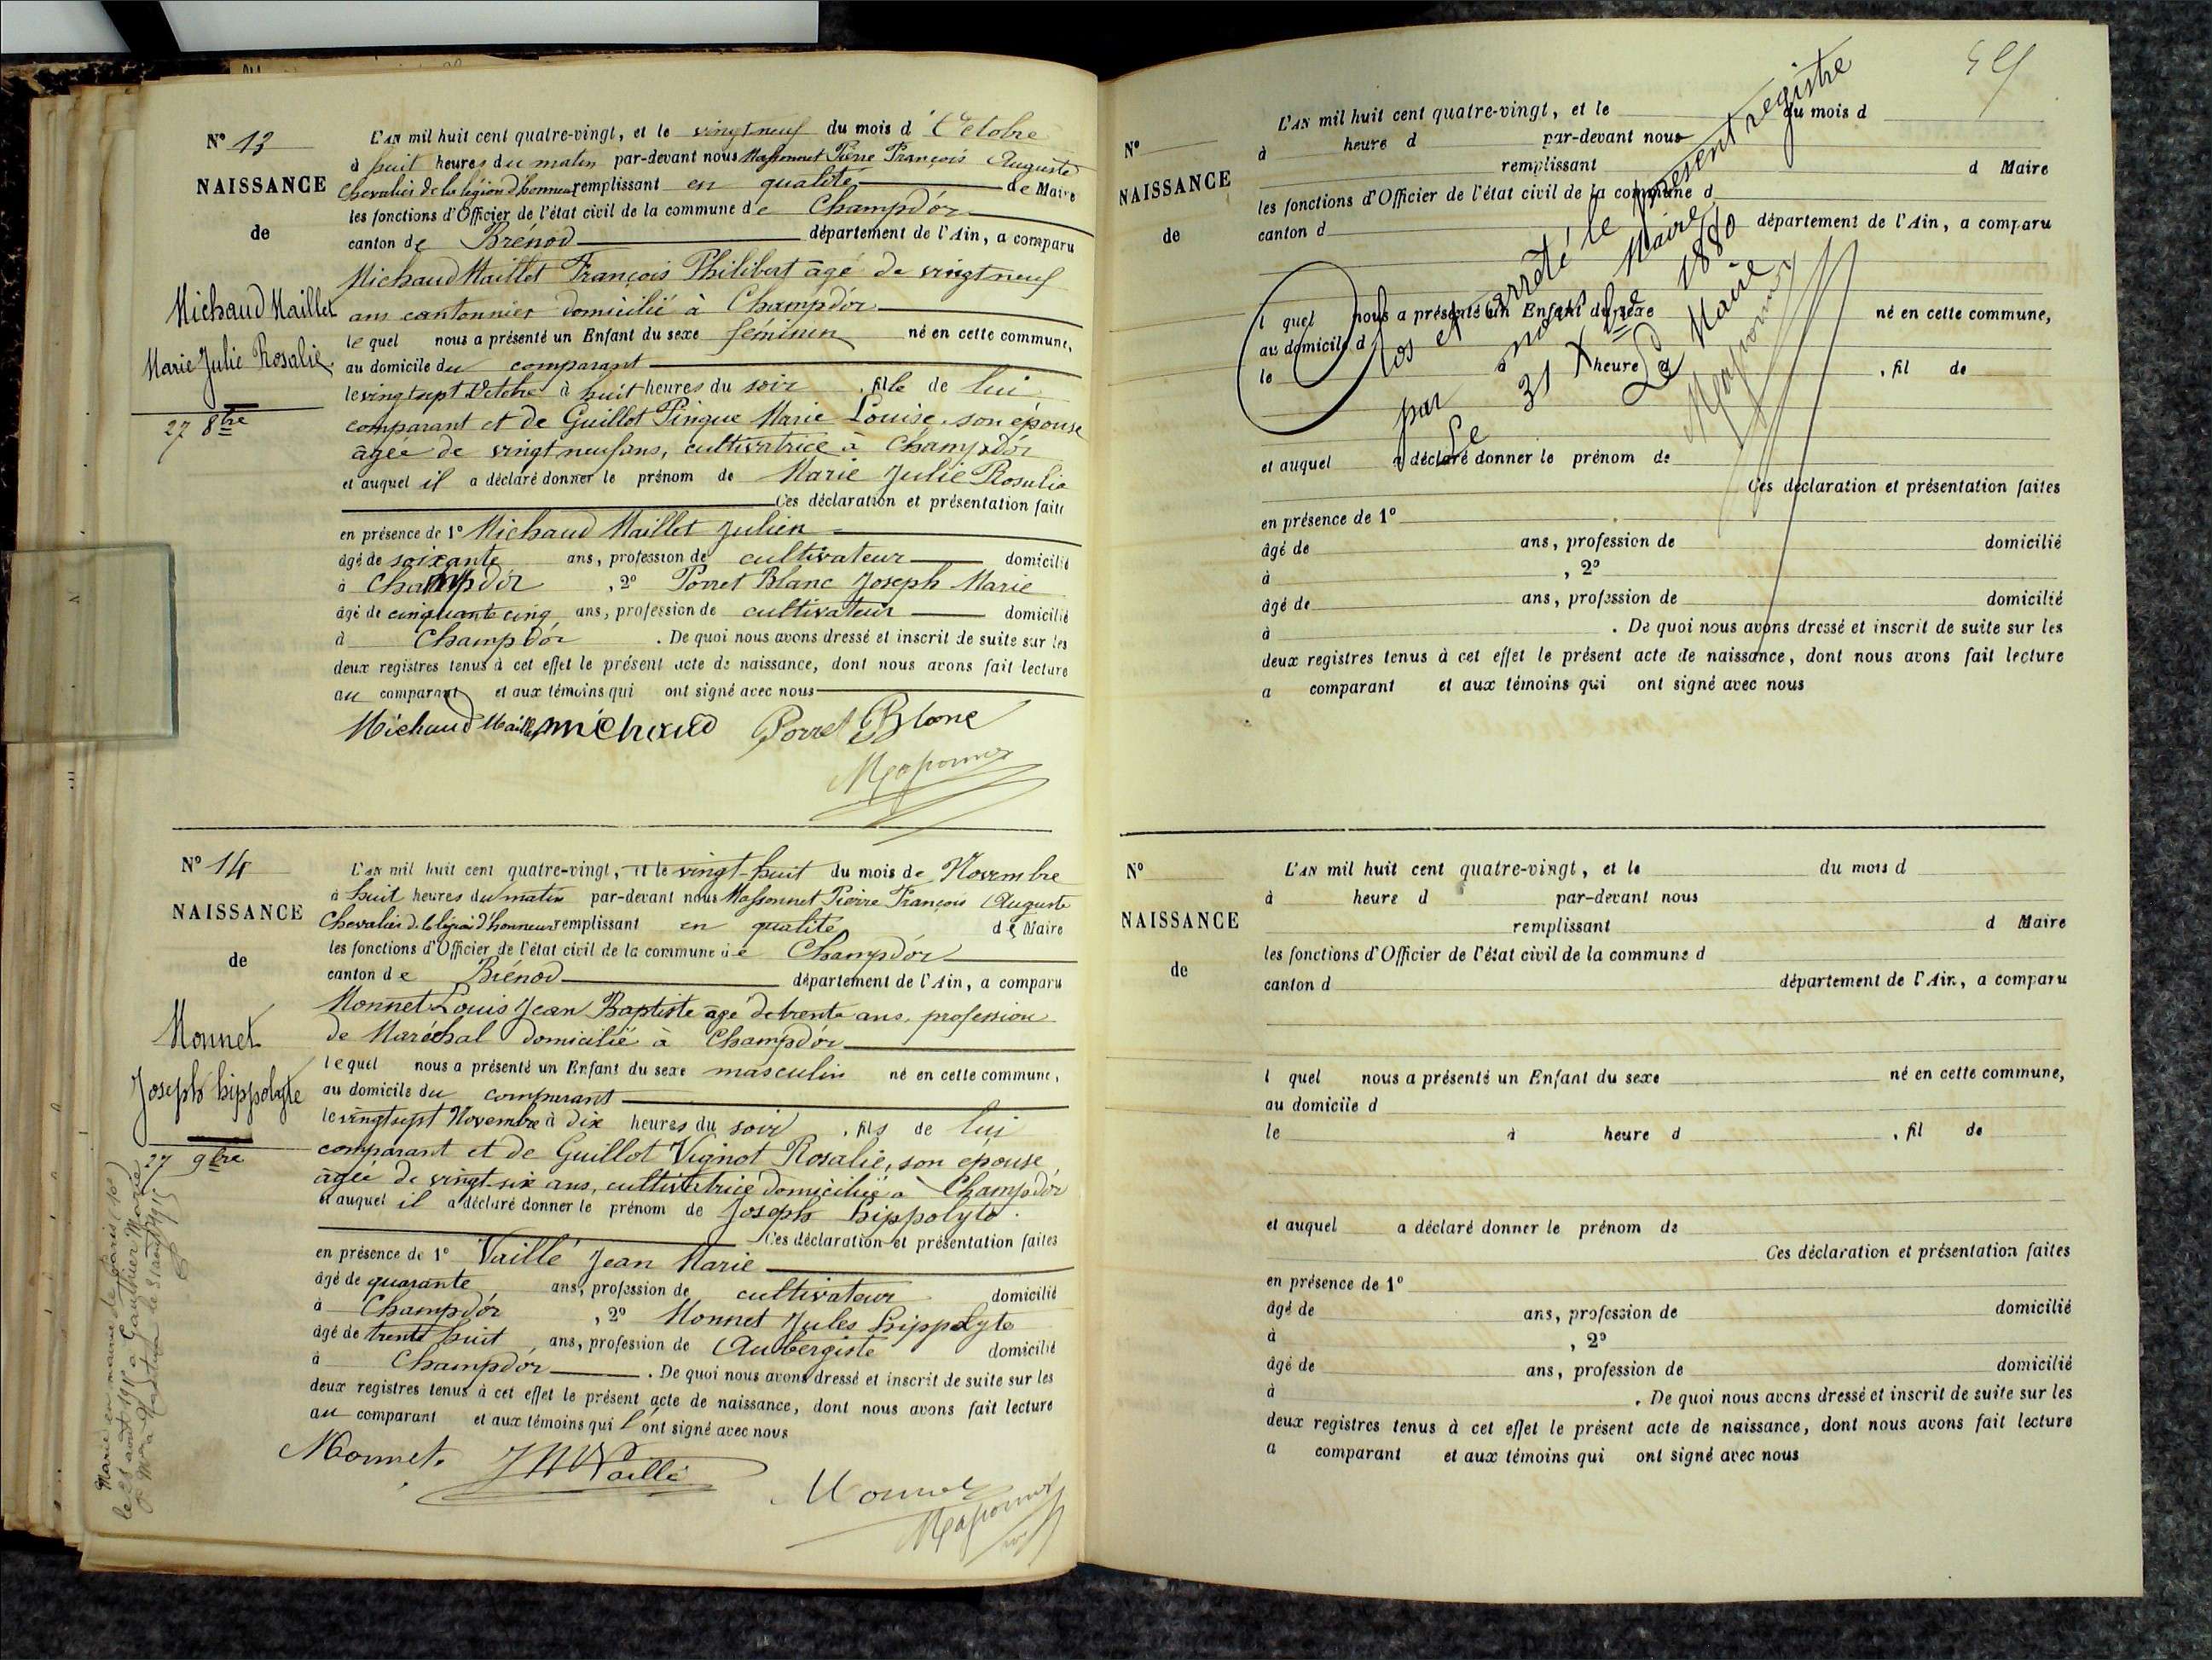 N° 13
NAISSANCE
de
Michaud Maillet
Marie Julie Rosalie
27 8bre
L'AN mil huit cent quatre-vingt, et le vingt neuf du mois d'Octobre
à huit heures du matin par-devant nous Massonnet Pierre François Auguste
Chevalier de la légion d'honneur remplissant en qualité de Maire
les fonctions d'Officier de l'état civil de la commune de Champdor
canton de Brénod département de l'Ain, a comparu
Michaud Maillet François Philibert âgé de vingt neuf
ans cantonnier domicilié à Champdor
lequel nous a présenté un Enfant du sexe féminin né en cette commune,
au domicile du comparant
le vingt sept Octobre à huit heures du soir, fille de lui
comparant et de Guillot Pingue Marie Louise, son épouse
âgée de vingt neuf ans, cultivatrice à Champdor
et auquel il a déclaré donner le prénom de Marie Julie Rosalie
Ces déclaration et présentation faites
en présence de 1° Michaud Maillet Julien
âgé de soixante ans, profession de cultivateur domicilié
à Champdor, 2° Porret Blanc Joseph Marie
âgé de cinquante cinq ans, profession de cultivateur domicilié
à Champdor. De quoi nous avons dressé et inscrit de suite sur les
deux registres tenus à cet effet le présent acte de naissance, dont nous avons fait lecture
au comparant et aux témoins qui ont signé avec nous
Michaud Maillet michaud Porret Blanc
Massonnet
N° 14
NAISSANCE
de
Monnet
Joseph hippolyte
27 9bre
L'AN mil huit cent quatre-vingt, et le vingt-huit du mois de Novembre
à huit heures du matin par-devant nous Massonnet Pierre François Auguste
Chevalier de la légion d'honneur remplissant en qualité de Maire
les fonctions d'Officier de l'état civil de la commune de Champdor
canton de Brénod département de l'Ain, a comparu
Monnet Louis Jean Baptiste âgé de trente ans, profession
de Maréchal domicilié à Champdor
lequel nous a présenté un Enfant du sexe masculin né en cette commune,
au domicile du comparant
le vingt sept Novembre à dix heures du soir, fils de lui
comparant et de Guillot Vignot Rosalie, son epouse
âgée de vingt-six ans, cultivatrice domiciliée à Champdor
et auquel il a déclaré donner le prénom de Joseph hippolyte.
Ces déclaration et présentation faites
en présence de 1° Vaillé Jean Marie
âgé de quarante ans, profession de cultivateur domicilié
à Champdor, 2° Monnet Jules hippolyte
âgé de trente huit ans, profession de Aubergiste domicilié
à Champdor. De quoi nous avons dressé et inscrit de suite sur les
deux registres tenus à cet effet le présent acte de naissance, dont nous avons fait lecture
au comparant et aux témoins qui l'ont signé avec nous
Monnet. JM Vaillé
Monnet
Massonnet
Marié en mairie de Paris
le août à Gauthier Marie
N°
NAISSANCE
de
L'AN mil huit cent quatre-vingt, et le du mois d
à heure d par-devant nous
remplissant d Maire
les fonctions d'Officier de l'état civil de la commune d
canton d département de l'Ain, a comparu
l quel nous a présenté un Enfant du sexe né en cette commune,
au domicile d
le à heure d, fil de
et auquel a déclaré donner le prénom de
Ces déclaration et présentation faites
en présence de 1°
âgé de ans, profession de domicilié
à, 2°
âgé de ans, profession de domicilié
à. De quoi nous avons dressé et inscrit de suite sur les
deux registres tenus à cet effet le présent acte de naissance, dont nous avons fait lecture
a comparant et aux témoins qui ont signé avec nous
Clos et arrêté le présent registre
par nous Maire
Le 31 Xbre 1880
Le Maire
Massonnet
N°
NAISSANCE
de
L'AN mil huit cent quatre-vingt, et le du mois d
à heure d par-devant nous
remplissant d Maire
les fonctions d'Officier de l'état civil de la commune d
canton d département de l'Ain, a comparu
l quel nous a présenté un Enfant du sexe né en cette commune,
au domicile d
le à heure d, fil de
et auquel a déclaré donner le prénom de
Ces déclaration et présentation faites
en présence de 1°
âgé de ans, profession de domicilié
à, 2°
âgé de ans, profession de domicilié
à. De quoi nous avons dressé et inscrit de suite sur les
deux registres tenus à cet effet le présent acte de naissance, dont nous avons fait lecture
a comparant et aux témoins qui ont signé avec nous